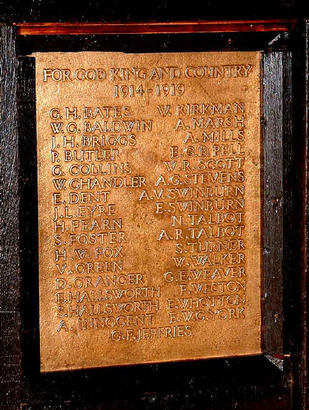 FOR GOD KING AND COUNTRY
1914-1919
G. H. BATES V. KIRKMAN
W. G. BALDWIN A. MARSH
J. H. BRIGGS A. MILLS
P. BUTLER E. S. B. PELL
G. COLLINS V. R. SCOTT
W. CHANDLER A. G. STEVENS
E. DENT A. V. SWINBURN
J. L. EYRE E. SWINBURN
H. FEARN N. TALBOT
S. FOSTER A. R. TALBOT
H. W. FOX S. TURNER
V. GREEN W. WALKER
D. GRANGER G. E. WEAVER
F. HALLSWORTH F. WESTON
S. HALLSWORTH E. WHOTTON
A. INNOCENT F. W. G. YORK
G. F. JEFFRIES